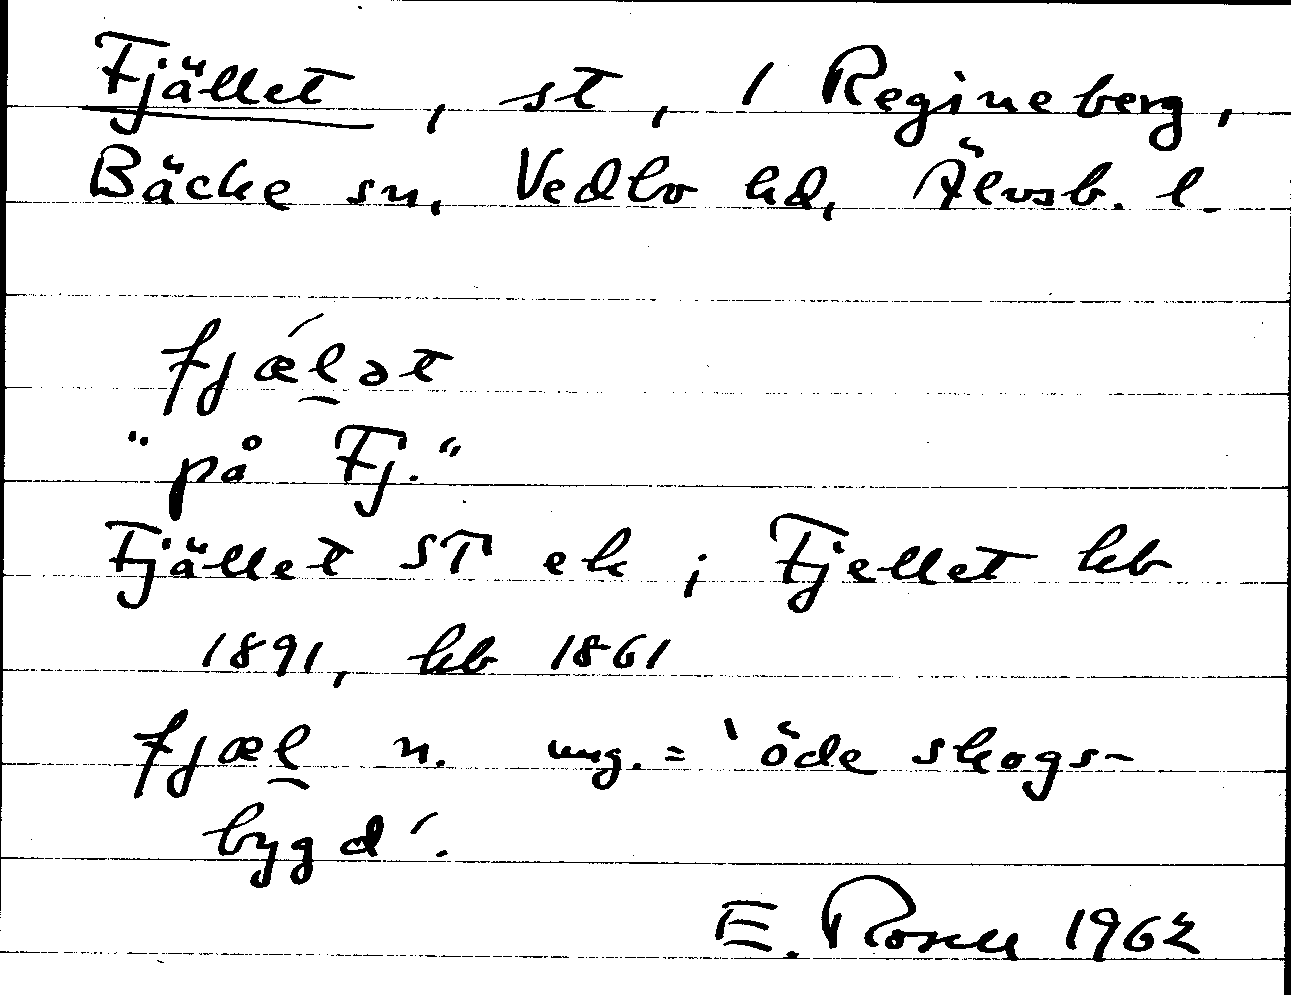 Fjället, st, / Regineberg,
Bäcke sn, Vedbo hd, Älvsb. l.
fjǽl̠ət
"på Fj."
Fjället ST ek ; Fjellet kb
1891, hb 1861
fjæl̠ n. ung. = 'öde skogs-
bygd'.
E. Rosell 1962